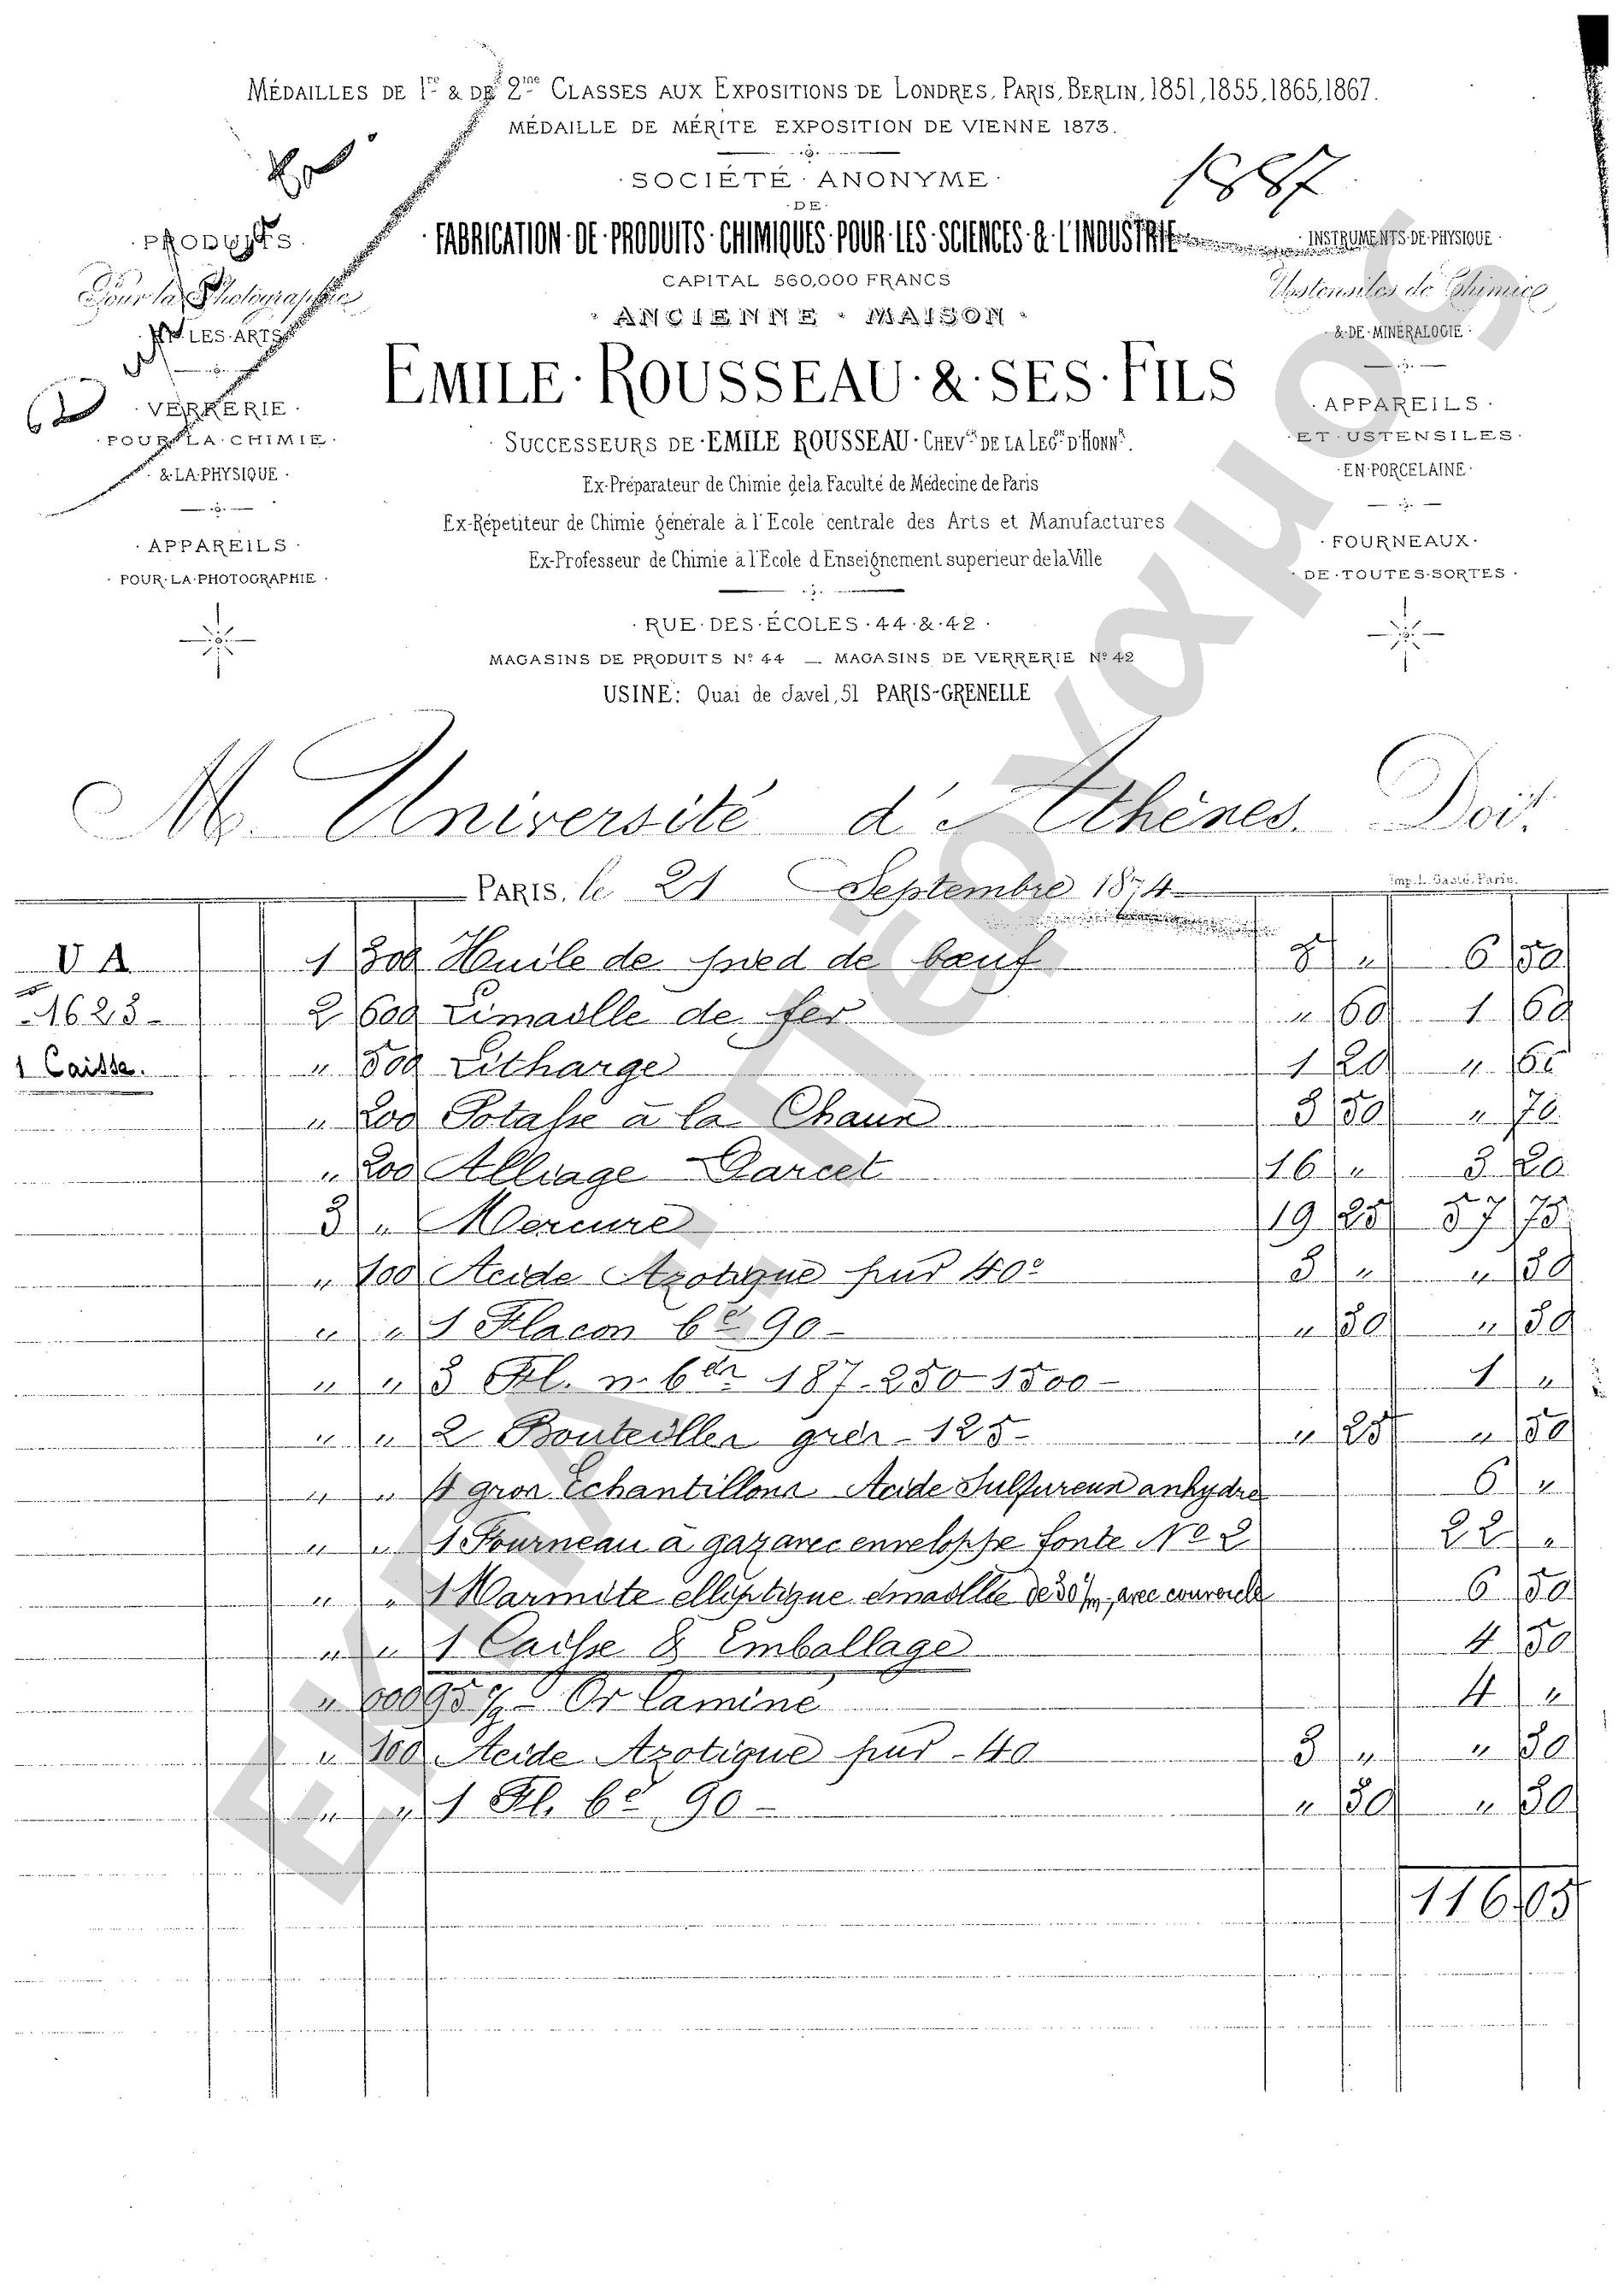 MÉDAILLES DE 1re & DE 2me CLASSES AUX EXPOSITIONS DE LONDRES, PARIS, BERLIN, 1851, 1855, 1865, 1867.
MÉDAILLE DE MÉRITE EXPOSITION DE VIENNE 1873.
1887
SOCIÉTÉ ANONYME
DE
FABRICATION DE PRODUITS CHIMIQUES POUR LES SCIENCES & L'INDUSTRIE
CAPITAL 560,000 FRANCS
ANCIENNE MAISON
EMILE ROUSSEAU & SES FILS
SUCCESSEURS DE EMILE ROUSSEAU CHEVer DE LA LEGon D'HONNr.
Ex-Préparateur de Chimie de la Faculté de Médecine de Paris
Ex-Répetiteur de Chimie générale à l'Ecole centrale des Arts et Manufactures
Ex-Professeur de Chimie à l'Ecole d'Enseignement superieur de la Ville
RUE DES ÉCOLES 44 & 42
MAGASINS DE PRODUITS No 44 — MAGASINS DE VERRERIE No 42
USINE: Quai de Javel, 51 PARIS-GRENELLE
PRODUITS
Pour la Photographie
LES ARTS
VERRERIE
POUR LA CHIMIE
& LA PHYSIQUE
APPAREILS
POUR LA PHOTOGRAPHIE
INSTRUMENTS DE PHYSIQUE
Ustensiles de Chimie
& DE MINÉRALOGIE
APPAREILS
ET USTENSILES
EN PORCELAINE
FOURNEAUX
DE TOUTES SORTES
M. Université d'Athènes. Doit.
PARIS, le 21 Septembre 1874
Imp. L. Gasté, Paris.
U A
1623
1 Caisse.
1 300 Huile de pied de bœuf 5 " 6 50
2 600 Limaille de fer " 60 1 60
" 500 Litharge 1 20 " 60
" 200 Potasse à la Chaux 3 50 " 70
" 200 Alliage Darcet 16 " 3 20
3 " Mercure 19 25 57 75
" 100 Acide Azotique pur 40° 3 " " 30
" " 1 Flacon bé 90 " 30 " 30
" " 3 Fl. n. bés 187-250-1500 1 "
" " 2 Bouteilles grès 125 " 25 " 50
" " 4 gros Echantillons Acide Sulfureux anhydre 6 "
" " 1 Fourneau à gaz avec enveloppe fonte No 2 22 "
" " 1 Marmite elliptique émaillée de 30 c/m avec couvercle 6 50
" " 1 Caisse & Emballage 4 50
" 000 95 Or laminé 4 "
" 100 Acide Azotique pur 40 3 " " 30
" " 1 Fl. bé 90 " 30 " 30
116 05
ΕΚΠΑ: Πέργαμος